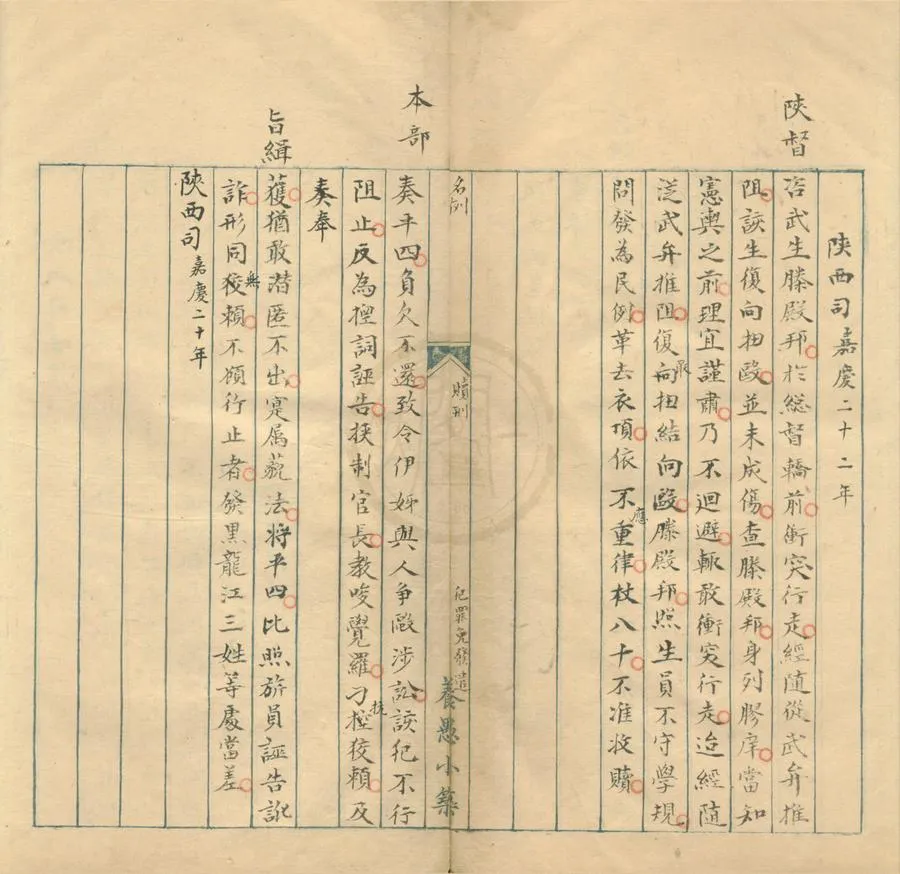 陝西司嘉慶二十二年
陝督
咨武生滕殿邦於總督轎前衝突行走經隨從武弁推
阻該生復向扭毆並未成傷查滕殿邦身列膠庠當知
憲輿之前理宜謹肅乃不迴避輒敢衝突行走迨經隨
從武弁推阻復敢向扭結向毆滕殿邦照生員不守學規
問發為民例革去衣頂依不應重律杖八十不准收贖
名例
贖刑
犯罪免發遣
養愚小築
本部
奏平四負欠不還致令伊姊與人爭毆涉訟該犯不行
阻止反為捏詞誣告挾制官長教唆覺羅刁抗控狡賴及
奏奉
旨緝
獲猶敢潛匿不出寔属藐法將平四比照旂員誣告訛
詐形同無狡賴不顧行止者發黑龍江三姓等處當差
陝西司嘉慶二十年